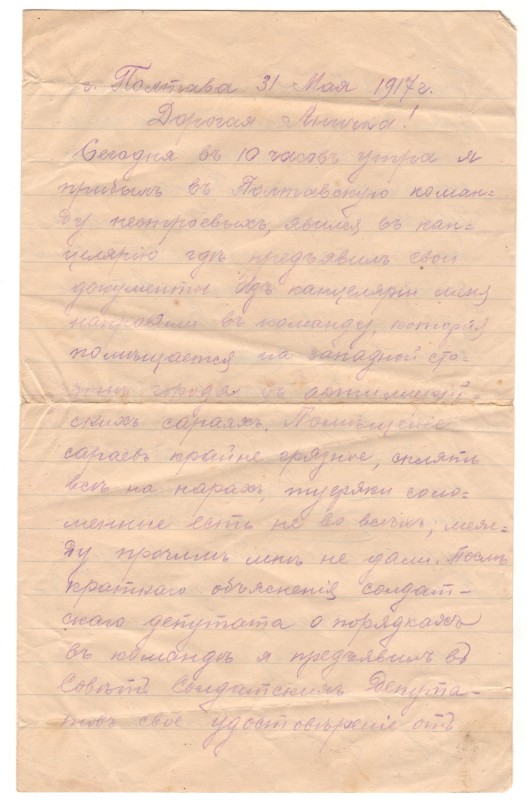 г. Полтава 31 Мая 1917 г.
Дорогая
Сегодня въ 10 часовъ утра я
прибылъ въ Полтавскую коман-
ду нестроевыхъ, явился въ кан-
целярію гдѣ предъявилъ свои
документы. Изъ канцеляріи меня
направили въ команду, которая
помѣщается на западной сто-
роне города въ
скихъ сараяхъ. Помѣщеніе
сараевъ крайне грязное, спятъ
всѣ на нарахъ, тюфяки соло-
менные есть не во всѣхъ, меж-
ду прочимъ мнѣ не дали. Послѣ
краткаго объясненія солдат-
скаго депутата о порядкахъ
въ командѣ я предъявилъ въ
Совѣтъ Солдатскихъ Депута-
товъ свое удостовѣреніе отъ